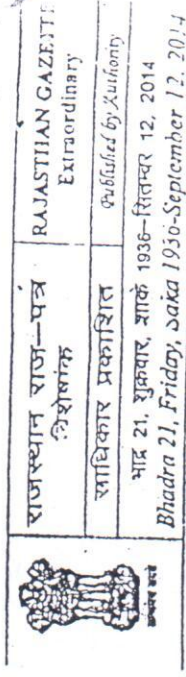 राजस्थान राज–पत्र
विशेषांक
RAJASTHAN GAZETTE
Extraordinary
साधिकार प्रकाशित
Published by Authority
भाद्र 21, शुक्रवार, शाके 1936–सितम्बर 12, 2014
Bhadra 21, Friday, Saka 1936-September 12, 2014
सत्यमेव जयते